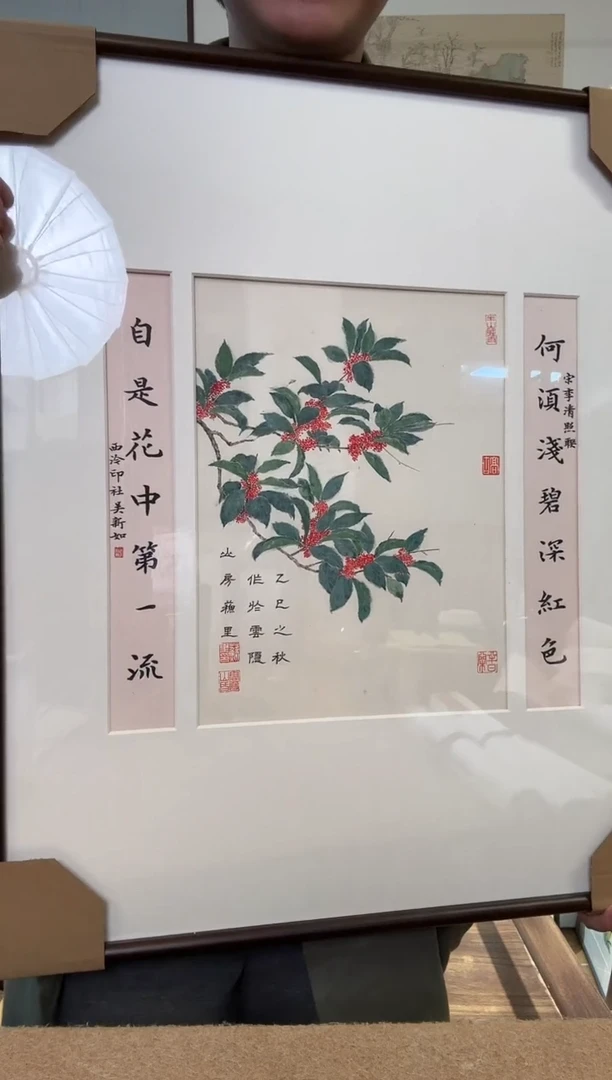 何須淺碧深紅色
宋李清照鞕
自是花中第一流
西泠印社吴新如
乙巳之秋
作於雲隱
山房蘋里